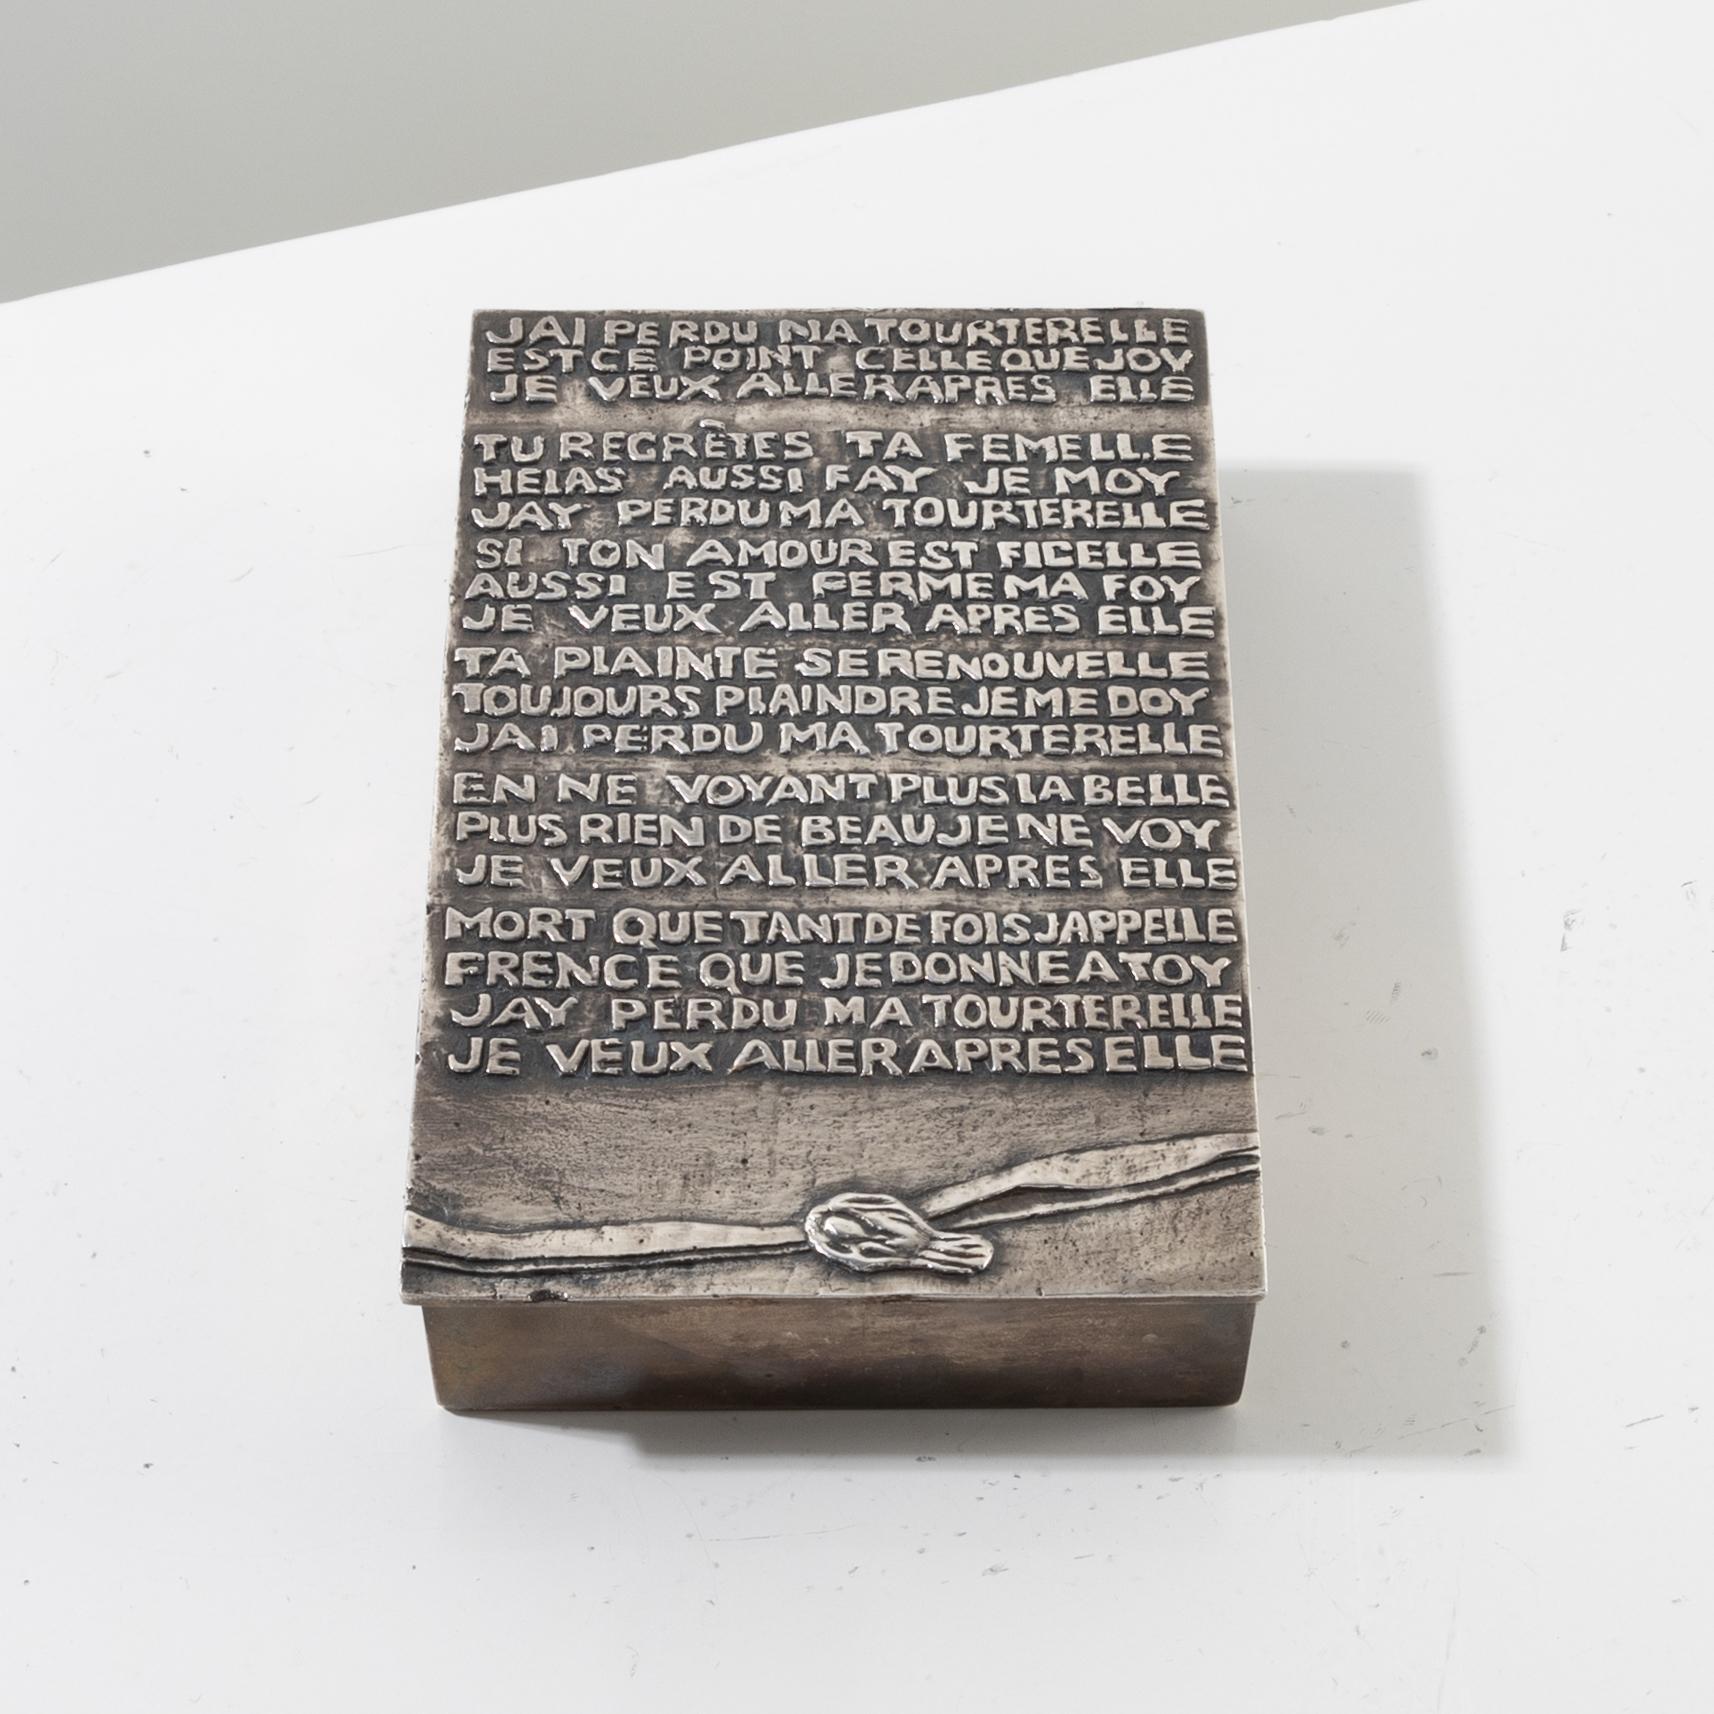 JAI PERDU MA TOURTERELLE
EST CE POINT CELLE QUE JOY
JE VEUX ALLER APRES ELLE
TU REGRÈTES TA FEMELLE
HELAS AUSSI FAY JE MOY
JAY PERDU MA TOURTERELLE
SI TON AMOUR EST FIDELLE
AUSSI EST FERME MA FOY
JE VEUX ALLER APRES ELLE
TA PLAINTE SE RENOUVELLE
TOUJOURS PLAINDRE JE ME DOY
JAI PERDU MA TOURTERELLE
EN NE VOYANT PLUS LA BELLE
PLUS RIEN DE BEAU JE NE VOY
JE VEUX ALLER APRES ELLE
MORT QUE TANT DE FOIS JAPPELLE
FRENCE QUE JE DONNE A TOY
JAY PERDU MA TOURTERELLE
JE VEUX ALLER APRES ELLE